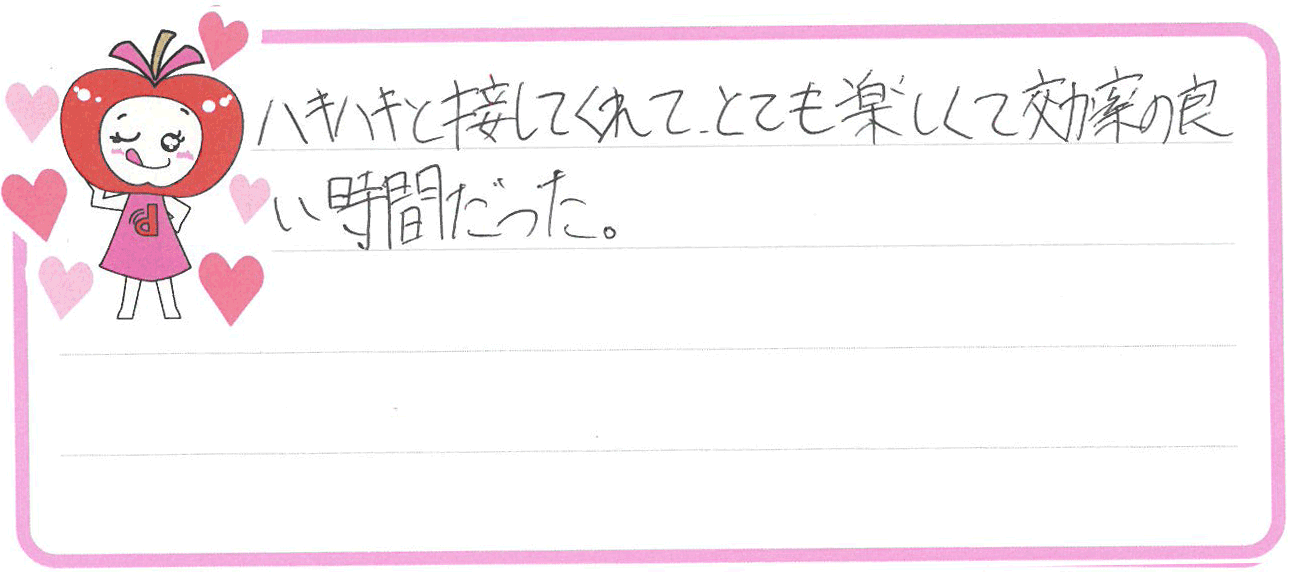 ハキハキと接してくれて、とても楽しくて効率の良
い時間だった。